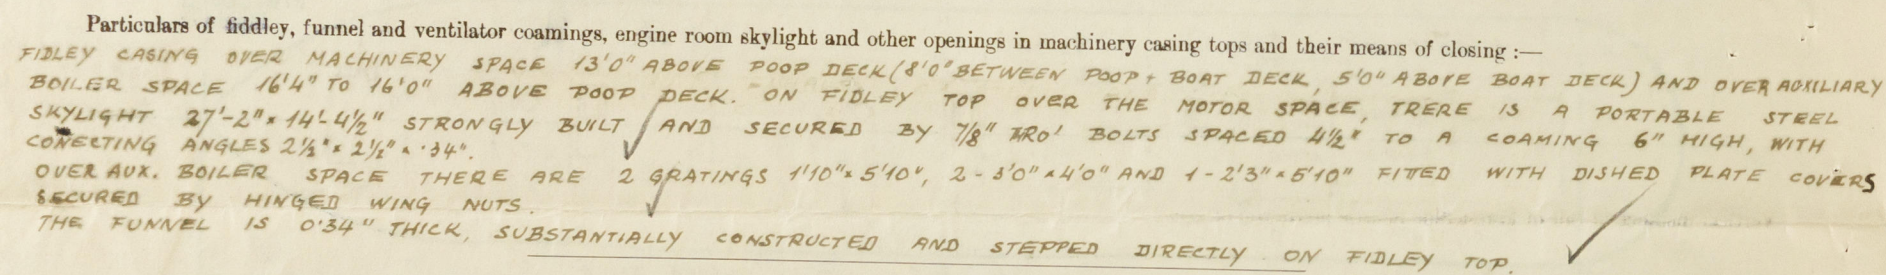 Particulars of fiddley, funnel and ventilator coamings, engine room skylight and other openings in machinery casing tops and their means of closing :—
FIDLEY CASING OVER MACHINERY SPACE 13'0" ABOVE POOP DECK (8'0" BETWEEN POOP + BOAT DECK, 5'0" ABOVE BOAT DECK) AND OVER AUXILIARY
BOILER SPACE 16'4" TO 16'0" ABOVE POOP DECK. ON FIDLEY TOP OVER THE MOTOR SPACE, TRERE IS A PORTABLE STEEL
SKYLIGHT 27'-2" × 14'-4½" STRONGLY BUILT AND SECURED BY 7/8" BOLTS SPACED 4½" TO A COAMING 6" HIGH, WITH
CONECTING ANGLES 2½" × 2½" × .34".
OVER AUX. BOILER SPACE THERE ARE 2 GRATINGS 1'10" × 5'10", 2 - 3'0" × 4'0" AND 1 - 2'3" × 5'10" FITTED WITH DISHED PLATE COVERS
SECURED BY HINGED WING NUTS.
THE FUNNEL IS 0'34" THICK, SUBSTANTIALLY CONSTRUCTED AND STEPPED DIRECTLY ON FIDLEY TOP.